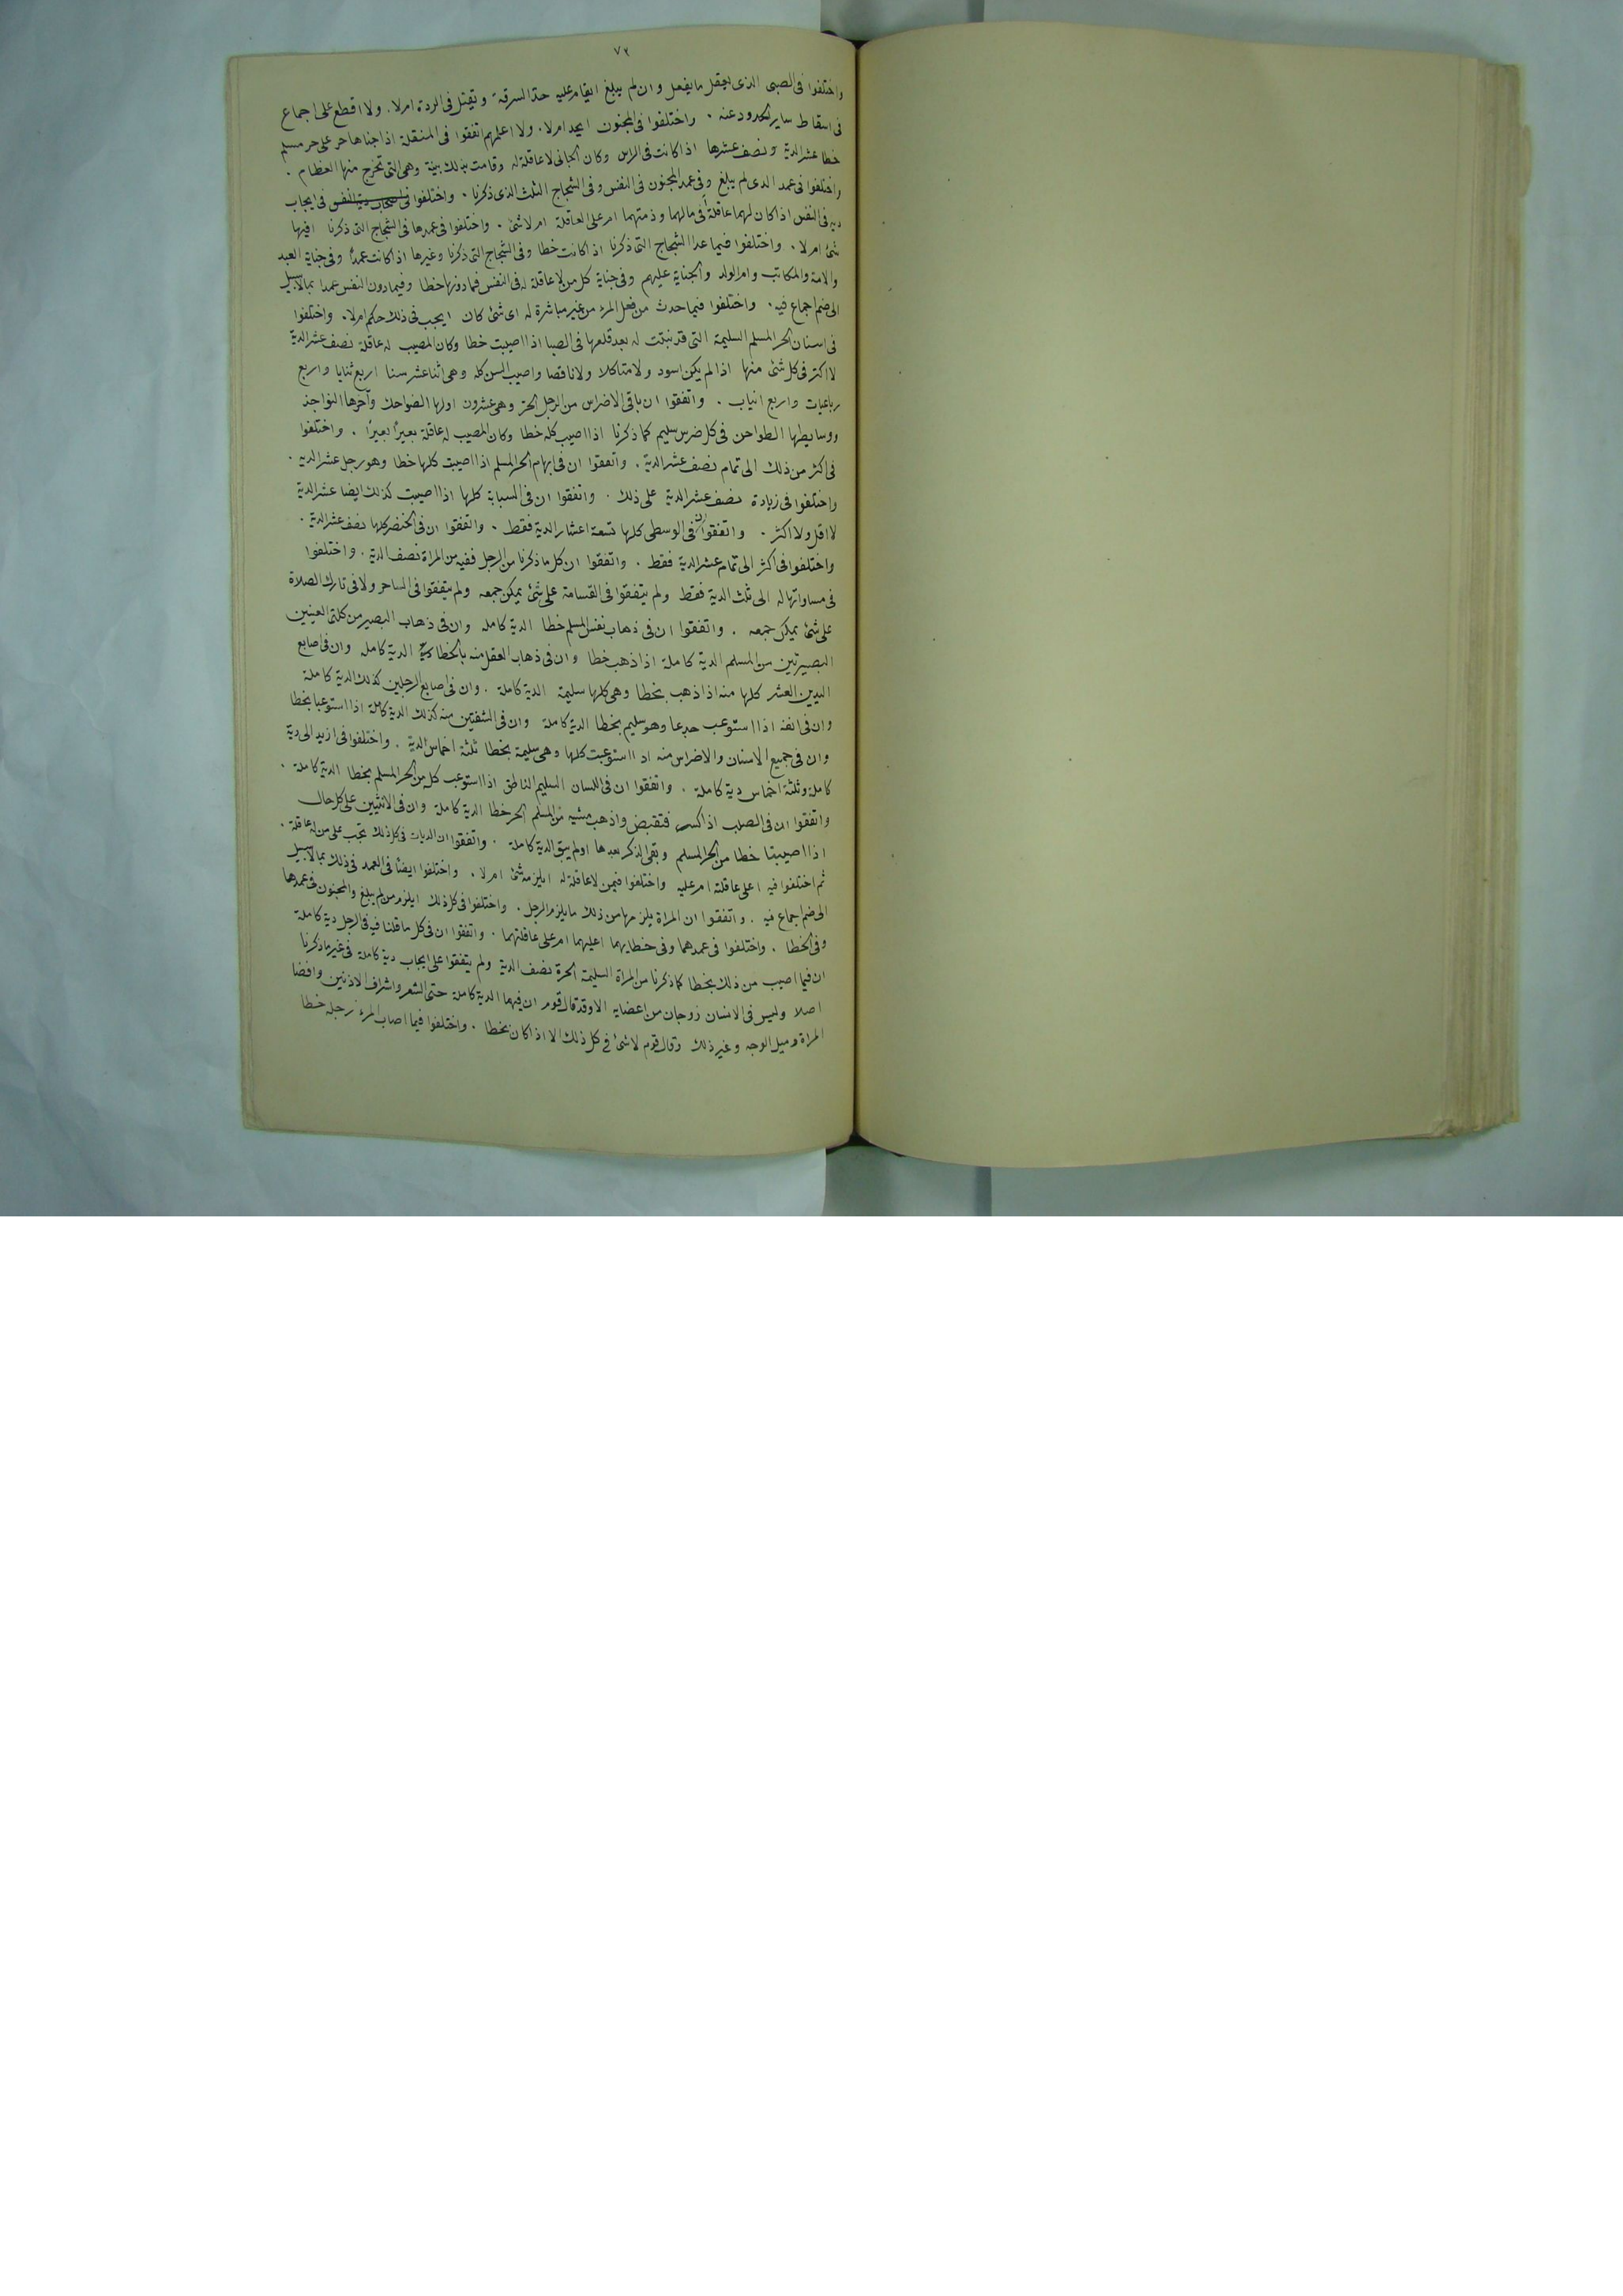 ٧٢
واختلفوا فى الصبى الذى يعقل ما يفعل وان لم يبلغ ايقام عليه حد السرقة ويقتل فى الردة ام لا . ولا اقطع على اجماع
فى اسقاط ساير الحدود عنه . واختلفوا فى المجنون ايحد ام لا . ولا اعلمهم اتفقوا فى المنقلة اذا جناها حر على حر مسلم
خطا عشر الدية ونصف عشرها اذا كانت فى الراس وكان الجانى لا عاقلة له وقامت بذلك بينة وهى التى تخرج منها العظام .
واختلفوا فى عمد الذى لم يبلغ وفى عمد المجنون فى النفس وفى الشجاج الثلث الذى ذكرنا . واختلفوا فى ايجاب
دية فى النفس اذا كان لهما عاقلة أفى مالهما وذمتهما ام على العاقلة ام لا شئ . واختلفوا فى عمدها فى الشجاج التى ذكرنا افيها
شئ ام لا . واختلفوا فيما عدا الشجاج التى ذكرنا اذا كانت خطا وفى الشجاج التى ذكرنا وغيرها اذا كانت عمدا وفى جناية العبد
والامة والمكاتب وام الولد والجناية عليهم وفى جناية كل من لا عاقلة له فى النفس فما دونها خطا وفيما دون النفس عمدا بما لا سبيل
الى ضم اجماع فيه . واختلفوا فيما حدث من فعل المرء من غير مباشرة له اى شئ كان ايجب فى ذلك حكم ام لا . واختلفوا
فى اسنان الحر المسلم السليمة التى قد نبتت له بعد قلعها فى الصبا اذا اصيبت خطا وكان المصيب له عاقلة نصف عشر الدية
لا اكثر فى كل شئ منها اذا لم يكن اسود ولا متاكلا ولا ناقصا واصيب السن كله وهى اثنا عشر سنا اربع ثنايا واربع
رباعيات واربع انياب . واتفقوا ان باقى الاضراس من الرجل الحر وهى عشرون اولها الضواحك وآخرها النواجذ
ووسايطها الطواحن فى كل ضرس سليم كما ذكرنا اذا اصيب كله خطا وكان المصيب له عاقلة بعيرا بعيرا . واختلفوا
فى اكثر من ذلك الى تمام نصف عشر الدية . واتفقوا ان فى ابهام الحر المسلم اذا اصيبت كلها خطا وهو رجل عشر الدية .
واختلفوا فى زيادة نصف عشر الدية على ذلك . واتفقوا ان فى السبابة كلها اذا اصيبت كذلك ايضا عشر الدية
لا اقل ولا اكثر . واتفقوا ان فى الوسطى كلها تسعة اعشار الدية فقط . واتفقوا ان فى الخنصر كلها نصف عشر الدية .
واختلفوا فى اكثر الى تمام عشر الدية فقط . واتفقوا ان كل ما ذكرنا من الرجل ففيه من المراة نصف الدية . واختلفوا
فى مساواتها له الى ثلث الدية فقط ولم يتفقوا فى القسامة على شئ يمكن جمعه ولم يتفقوا فى الساحر ولا فى تارك الصلاة
على شئ يمكن جمعه . واتفقوا ان فى ذهاب نفس المسلم خطا الدية كاملة وان فى ذهاب البصر من كلتا العينين
البصيرتين من المسلم الدية كاملة اذا ذهب خطا وان فى ذهاب العقل منه بالخطا الدية كاملة وان فى اصابع
اليدين العشر كلها منه اذا ذهب بخطا وهى كلها سليمة الدية كاملة . وان فى اصابع الرجلين كذلك الدية كاملة
وان فى انفه اذا استوعب جدعا وهو سليم بخطا الدية كاملة وان فى الشفتين منه كذلك الدية كاملة اذا استوعبا بخطا
وان فى جميع الاسنان والاضراس منه اذا استوعبت كلها وهى سليمة بخطا ثلثة اخماس الدية . واختلفوا فى ازيد الى دية
كاملة وثلثة اخماس دية كاملة . واتفقوا ان فى اللسان السليم الناطق اذا استوعب كل من الحر المسلم بخطا الدية كاملة .
واتفقوا ان فى الصلب اذا كسر فتقبض واذهب مشيه من المسلم الحر خطا الدية كاملة وان فى الانثيين على كل حال
اذا اصيبتا خطا من الحر المسلم وبقى الذكر بعدها او لم يبق الدية كاملة . واتفقوا ان الديات فى كل ذلك تجب على من له عاقلة .
ثم اختلفوا فيه اعلى عاقلته ام عليه واختلفوا فيمن لا عاقلة له ايلزمه شئ ام لا . واختلفوا ايضا فى العمد فى ذلك بما لا سبيل
الى ضم اجماع فيه . واتفقوا ان المراة يلزمها من ذلك ما يلزم الرجل . واختلفوا فى كل ذلك ايلزم من لم يبلغ والمجنون فى عمدها
وفى الخطا . واختلفوا فى عمدهما وفى خطايهما اعليهما ام على عاقلتهما . واتفقوا ان فى كل ما قلنا فيه فى الرجل دية كاملة
ان فيما اصيب من ذلك بخطا كما ذكرنا من المراة السليمة الحرة نصف الدية ولم يتفقوا على ايجاب دية كاملة فى غير ما ذكرنا
اصلا وليس فى الانسان زوجان من اعضايه الا وقد قال قوم ان فيهما الدية كاملة حتى الشعر واشراف الاذنين وافضا
المراة وميل الوجه وغير ذلك وقال قوم لا شئ فى كل ذلك الا اذا كان بخطا . واختلفوا فيما اصاب المرء رجله خطا